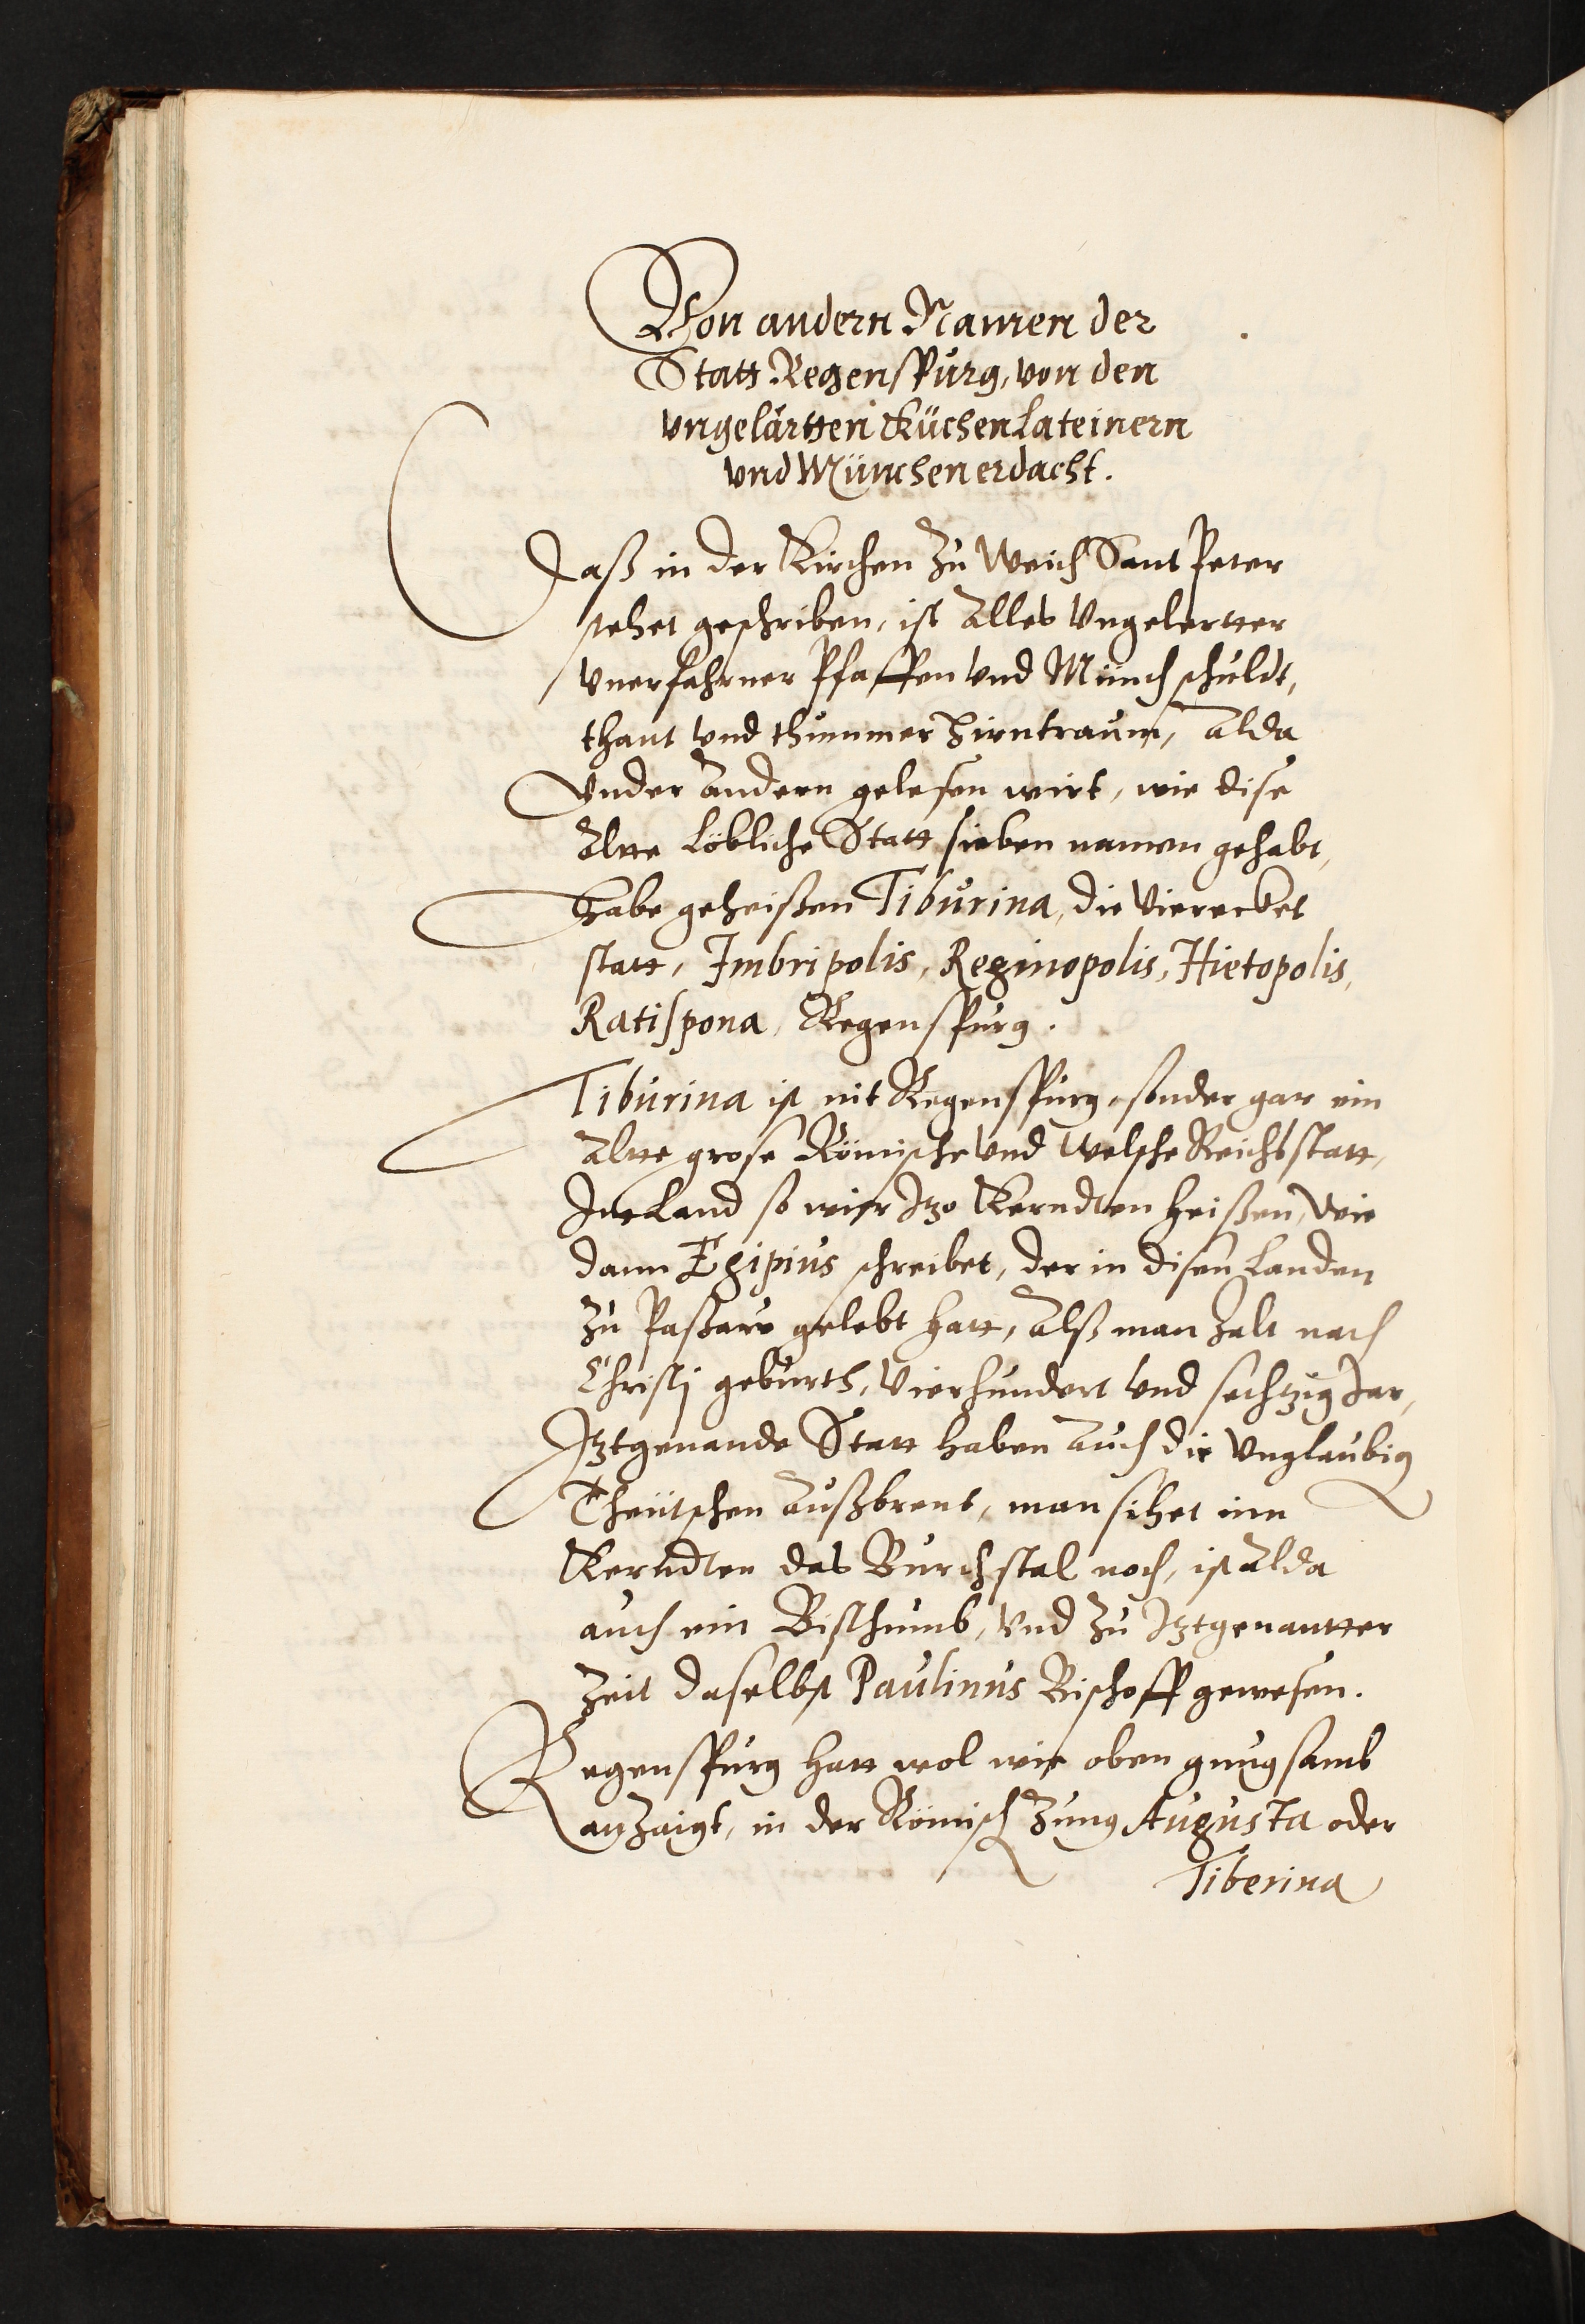 Von andern Namen der
Statt Regenspurg, von den
vngelärtten KüchenLateinern
vnd München erdacht.
Daß in der Kirchen zu Weich Sant Peter
stehet geschriben, ist Alles Vngelertter
Vnerfahrner Pfaffen vnd Münch schuldt,
thant vnd thummer hirntraum, Alda
Vnder Andern gelesen wirt, wie dise
Alte Löbliche Statt sieben namen gehabt,
habe geheißen Tiburina, die Vierecket
statt, Imbripolis, Reginopolis, Hietopolis,
Ratispona, Regenspurg.
Tiburina ist nit Regenspurg, sonder gar ein
Alte grose Römische vnd Welsche Reichsstatt,
Im Land so wier Itzo Kerndten heißen, Wie
dann Egipius schreibet, der in disen Landen
zu Paßaw gelebt hatt, Alß man zalt nach
Christj geburth, Vierhundert vnd sechtzig Jar,
Itztgenande Statt haben Auch die Vnglaubig
Theütschen Außbrent, man sihet inn
Kerndten das Burchstal noch, ist Alda
auch ein Bisthumb, Vnd zu Itztgenantter
Zeit daselbst Paulinus Bischoff gewesen.
Regenspurg hatt wol wie oben gnugsamb
anzaigt, in der Römisch Zung Augusta oder
Tiberina